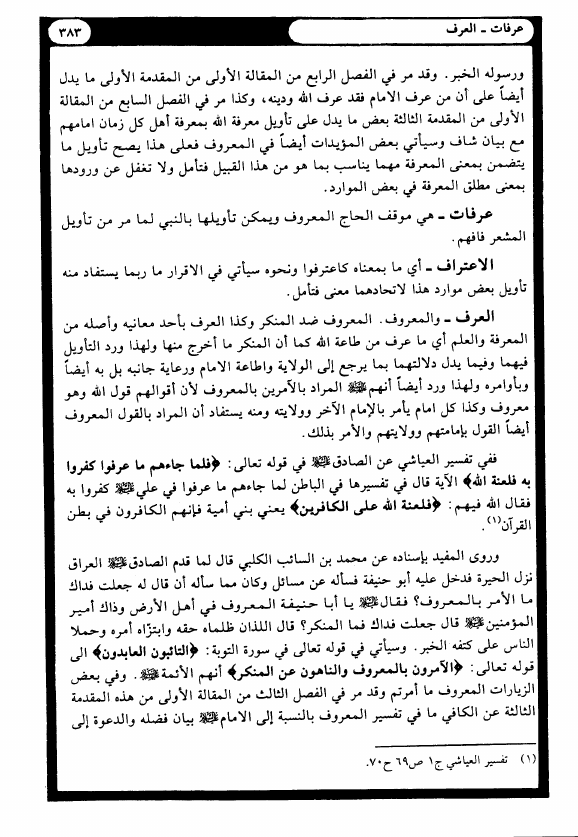 عرفات ـ العرف
٣٨٣
ورسوله الخبر. وقد مر في الفصل الرابع من المقالة الأولى من المقدمة الأولى ما يدل
أيضاً على أن من عرف الامام فقد عرف الله ودينه، وكذا مر في الفصل السابع من المقالة
الأولى من المقدمة الثالثة بعض ما يدل على تأويل معرفة الله بمعرفة أهل كل زمان امامهم
مع بيان شاف وسيأتي بعض المؤيدات أيضاً في المعروف فعلى هذا يصح تأويل ما
يتضمن بمعنى المعرفة مهما يناسب بما هو من هذا القبيل فتأمل ولا تغفل عن ورودها
بمعنى مطلق المعرفة في بعض الموارد.
عرفات ـ هي موقف الحاج المعروف ويمكن تأويلها بالنبي لما مر من تأويل
المشعر فافهم.
الاعتراف ـ أي ما بمعناه كاعترفوا ونحوه سيأتي في الاقرار ما ربما يستفاد منه
تأويل بعض موارد هذا لاتحادهما معنى فتأمل.
العرف ـ والمعروف. المعروف ضد المنكر وكذا العرف بأحد معانيه وأصله من
المعرفة والعلم أي ما عرف من طاعة الله كما أن المنكر ما أخرج منها ولهذا ورد التأويل
فيهما وفيما يدل دلالتهما بما يرجع إلى الولاية واطاعة الامام ورعاية جانبه بل به أيضاً
وبأوامره ولهذا ورد أيضاً أنهم ﷺ المراد بالآمرين بالمعروف لأن أقوالهم قول الله وهو
معروف وكذا كل امام يأمر بالإمام الآخر وولايته ومنه يستفاد أن المراد بالقول المعروف
أيضاً القول بإمامتهم وولايتهم والأمر بذلك.
ففي تفسير العياشي عن الصادق في قوله تعالى: ﴿فلما جاءهم ما عرفوا كفروا
به فلعنة الله﴾ الآية قال في تفسيرها في الباطن لما جاءهم ما عرفوا في علي كفروا به
فقال الله فيهم: ﴿فلعنة الله على الكافرين﴾ يعني بني أمية فإنهم الكافرون في بطن
القرآن(١).
وروى المفيد بإسناده عن محمد بن السائب الكلبي قال لما قدم الصادق العراق
نزل الحيرة فدخل عليه أبو حنيفة فسأله عن مسائل وكان مما سأله أن قال له جعلت فداك
ما الأمر بالمعروف؟ فقال يا أبا حنيفة المعروف في أهل الأرض وذاك أمير
المؤمنين قال جعلت فداك فما المنكر؟ قال اللذان ظلماه حقه وابتزّاه أمره وحملا
الناس على كتفه الخبر. وسيأتي في قوله تعالى في سورة التوبة: ﴿التائبون العابدون﴾ الى
قوله تعالى: ﴿الآمرون بالمعروف والناهون عن المنكر﴾ أنهم الأئمة. وفي بعض
الزيارات المعروف ما أمرتم وقد مر في الفصل الثالث من المقالة الأولى من هذه المقدمة
الثالثة عن الكافي ما في تفسير المعروف بالنسبة إلى الامام بيان فضله والدعوة إلى
(١) تفسير العياشي ج١ ص٦٩ ح٧٠.